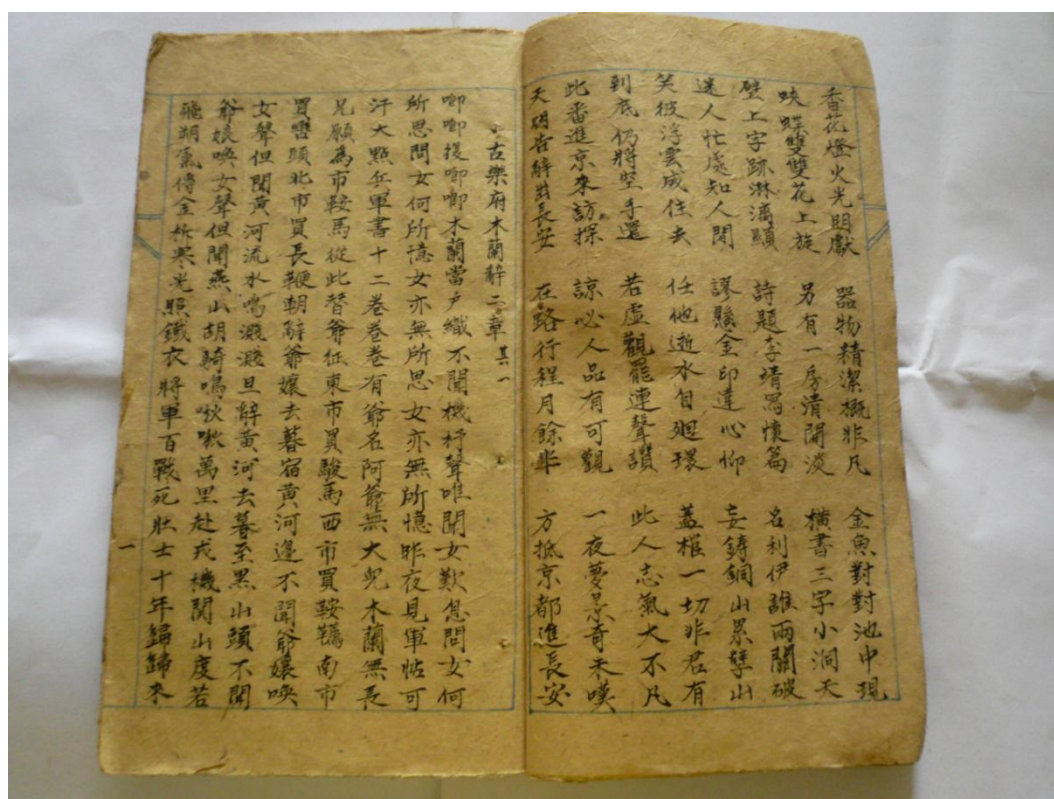 香花燈火光明獻 器物精潔概非凡 金魚對對池中現
蛺蝶雙雙花上旋 另有一房清閒淡 橫書三字小洞天
壁上字跡淋漓顯 詩題李靖寫懷篇 名利伊誰兩關破
迷人忙處知人閒 謬懸金印違心仰 妄鑄銅山累孽山
笑彼浮雲成住去 任他逝水自迴環 蓋棺一切非君有
到底仍將空手還 若虛觀罷連聲讚 此人志氣大不凡
此番進京來訪探 諒必人品有可觀 一夜夢景奇禾嘆
天明告辭出長安 在路行程月餘半 方抵京都進長安
古樂府木蘭辭二章 其一
唧唧復唧唧木蘭當户織不聞機杼聲唯聞女歎息問女何
所思問女何所憶女亦無所思女亦無所憶昨夜見軍帖可
汗大點兵軍書十二卷卷卷有爺名阿爺無大兒木蘭無長
兄願為市鞍馬從此替爺征東市買駿馬西市買鞍韉南市
買轡頭北市買長鞭朝辭爺孃去暮宿黃河邊不聞爺孃喚
女聲但聞黃河流水鳴濺濺旦辭黃河去暮至黑山頭不聞
爺孃喚女聲但聞燕山胡騎鳴啾啾萬里赴戎機関山度若
飛朔氣傳金柝寒光照鐵衣將軍百戰死壯士十年歸歸來
一